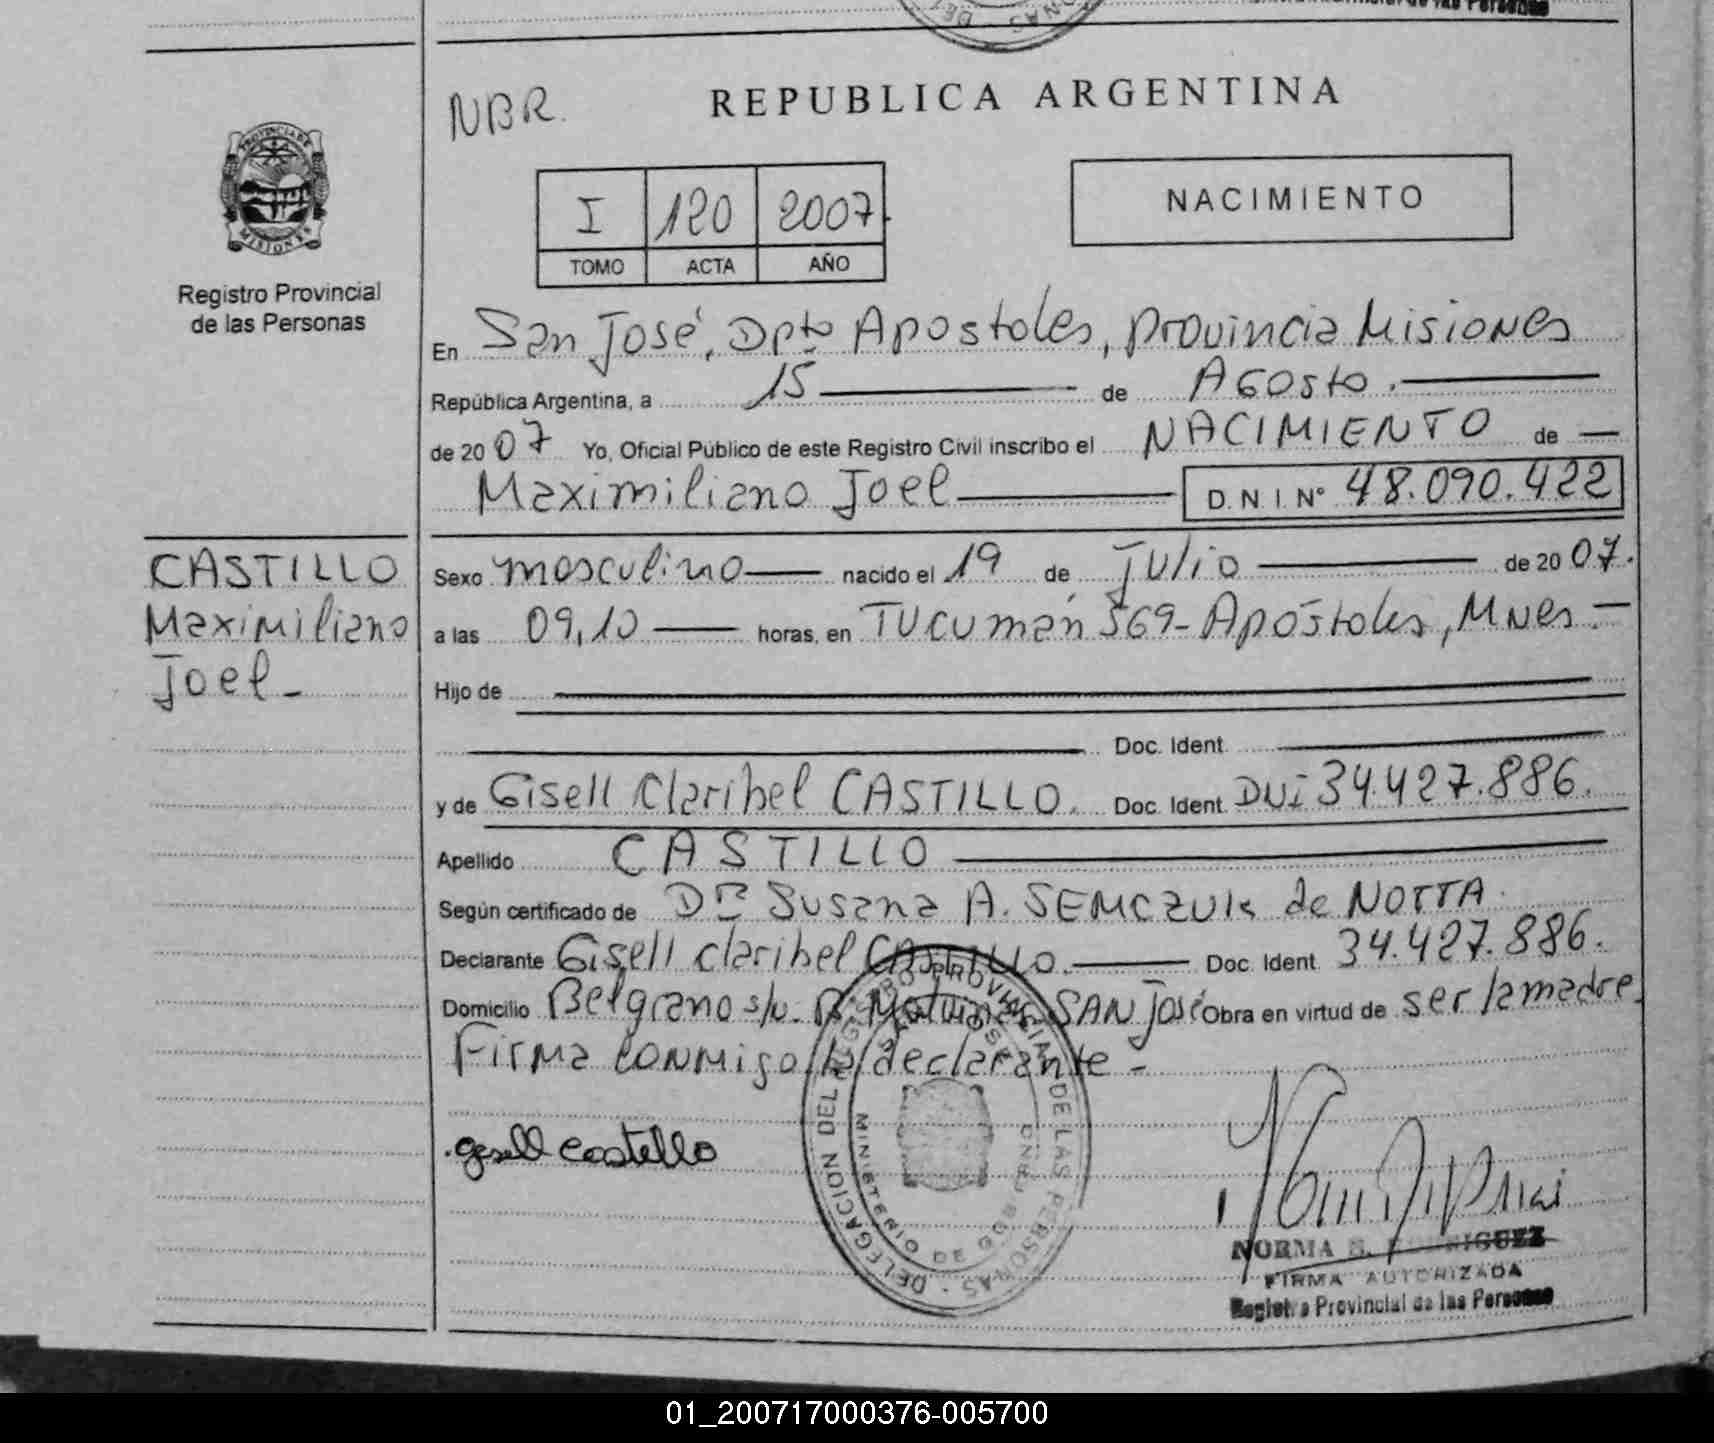 NBR.
REPUBLICA ARGENTINA
PROVINCIA DE
MISIONES
Registro Provincial
de las Personas
I 120 2007
TOMO ACTA AÑO
NACIMIENTO
En San José, Dpto Apostoles, provincia Misiones
República Argentina, a 15 de Agosto.
de 2007 Yo, Oficial Público de este Registro Civil inscribo el NACIMIENTO de
Maximiliano Joel D.N.I. Nº 48.090.422
CASTILLO
Maximiliano
Joel-
Sexo masculino nacido el 19 de Julio de 2007.
a las 09,10 horas, en Tucumán 569- Apóstoles, Mnes.-
Hijo de
Doc. Ident.
y de Gisell Claribel CASTILLO. Doc. Ident. DNi 34.427.886.
Apellido CASTILLO
Según certificado de Dra Susana A. SEMCZUK de NOTTA.
Declarante Gisell claribel CASTILLO. Doc. Ident. 34.427.886.
Domicilio Belgrano s/n. B. Malvinas SAN José Obra en virtud de ser la madre.
Firma conmigo la declarante-
DELEGACION DEL REGISTRO PROVINCIAL DE LAS PERSONAS
MINISTERIO DE GOB
gesell castello
NORMA RODRIGUEZ
FIRMA AUTORIZADA
Registro Provincial de las Personas
01_200717000376-005700